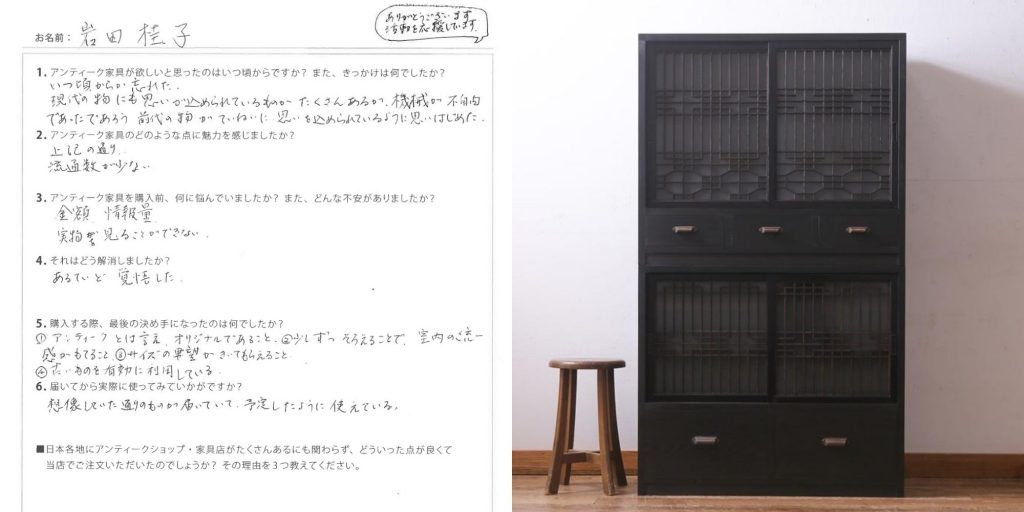 お名前： 岩田 桂子
ありがとうございます
活動を応援しています。
1. アンティーク家具が欲しいと思ったのはいつ頃からですか？ また、きっかけは何でしたか？
いつ頃からか忘れた.
現代の物にも思いが込められているものがたくさんあるが、機械が不自由
であったであろう 前代の物がていねいに思いを込められているように思いはじめた.
2. アンティーク家具のどのような点に魅力を感じましたか？
上記の通り.
流通数が少ない
3. アンティーク家具を購入前、何に悩んでいましたか？ また、どんな不安がありましたか？
金額 情報量
実物 見ることができない.
4. それはどう解消しましたか？
あるていど 覚悟した.
5. 購入する際、最後の決め手になったのは何でしたか？
① アンティークとは言え、オリジナルであること. ②少しずつ そろえることで、室内の統一
感がもてること. ③サイズの要望がきいてもらえること.
④ 古いものを有効に利用している.
6. 届いてから実際に使ってみていかがですか？
想像していた通りのものが届いていて、予定したように 使えている。
■日本各地にアンティークショップ・家具店がたくさんあるにも関わらず、どういった点が良くて
当店でご注文いただいたのでしょうか？ その理由を３つ教えてください。